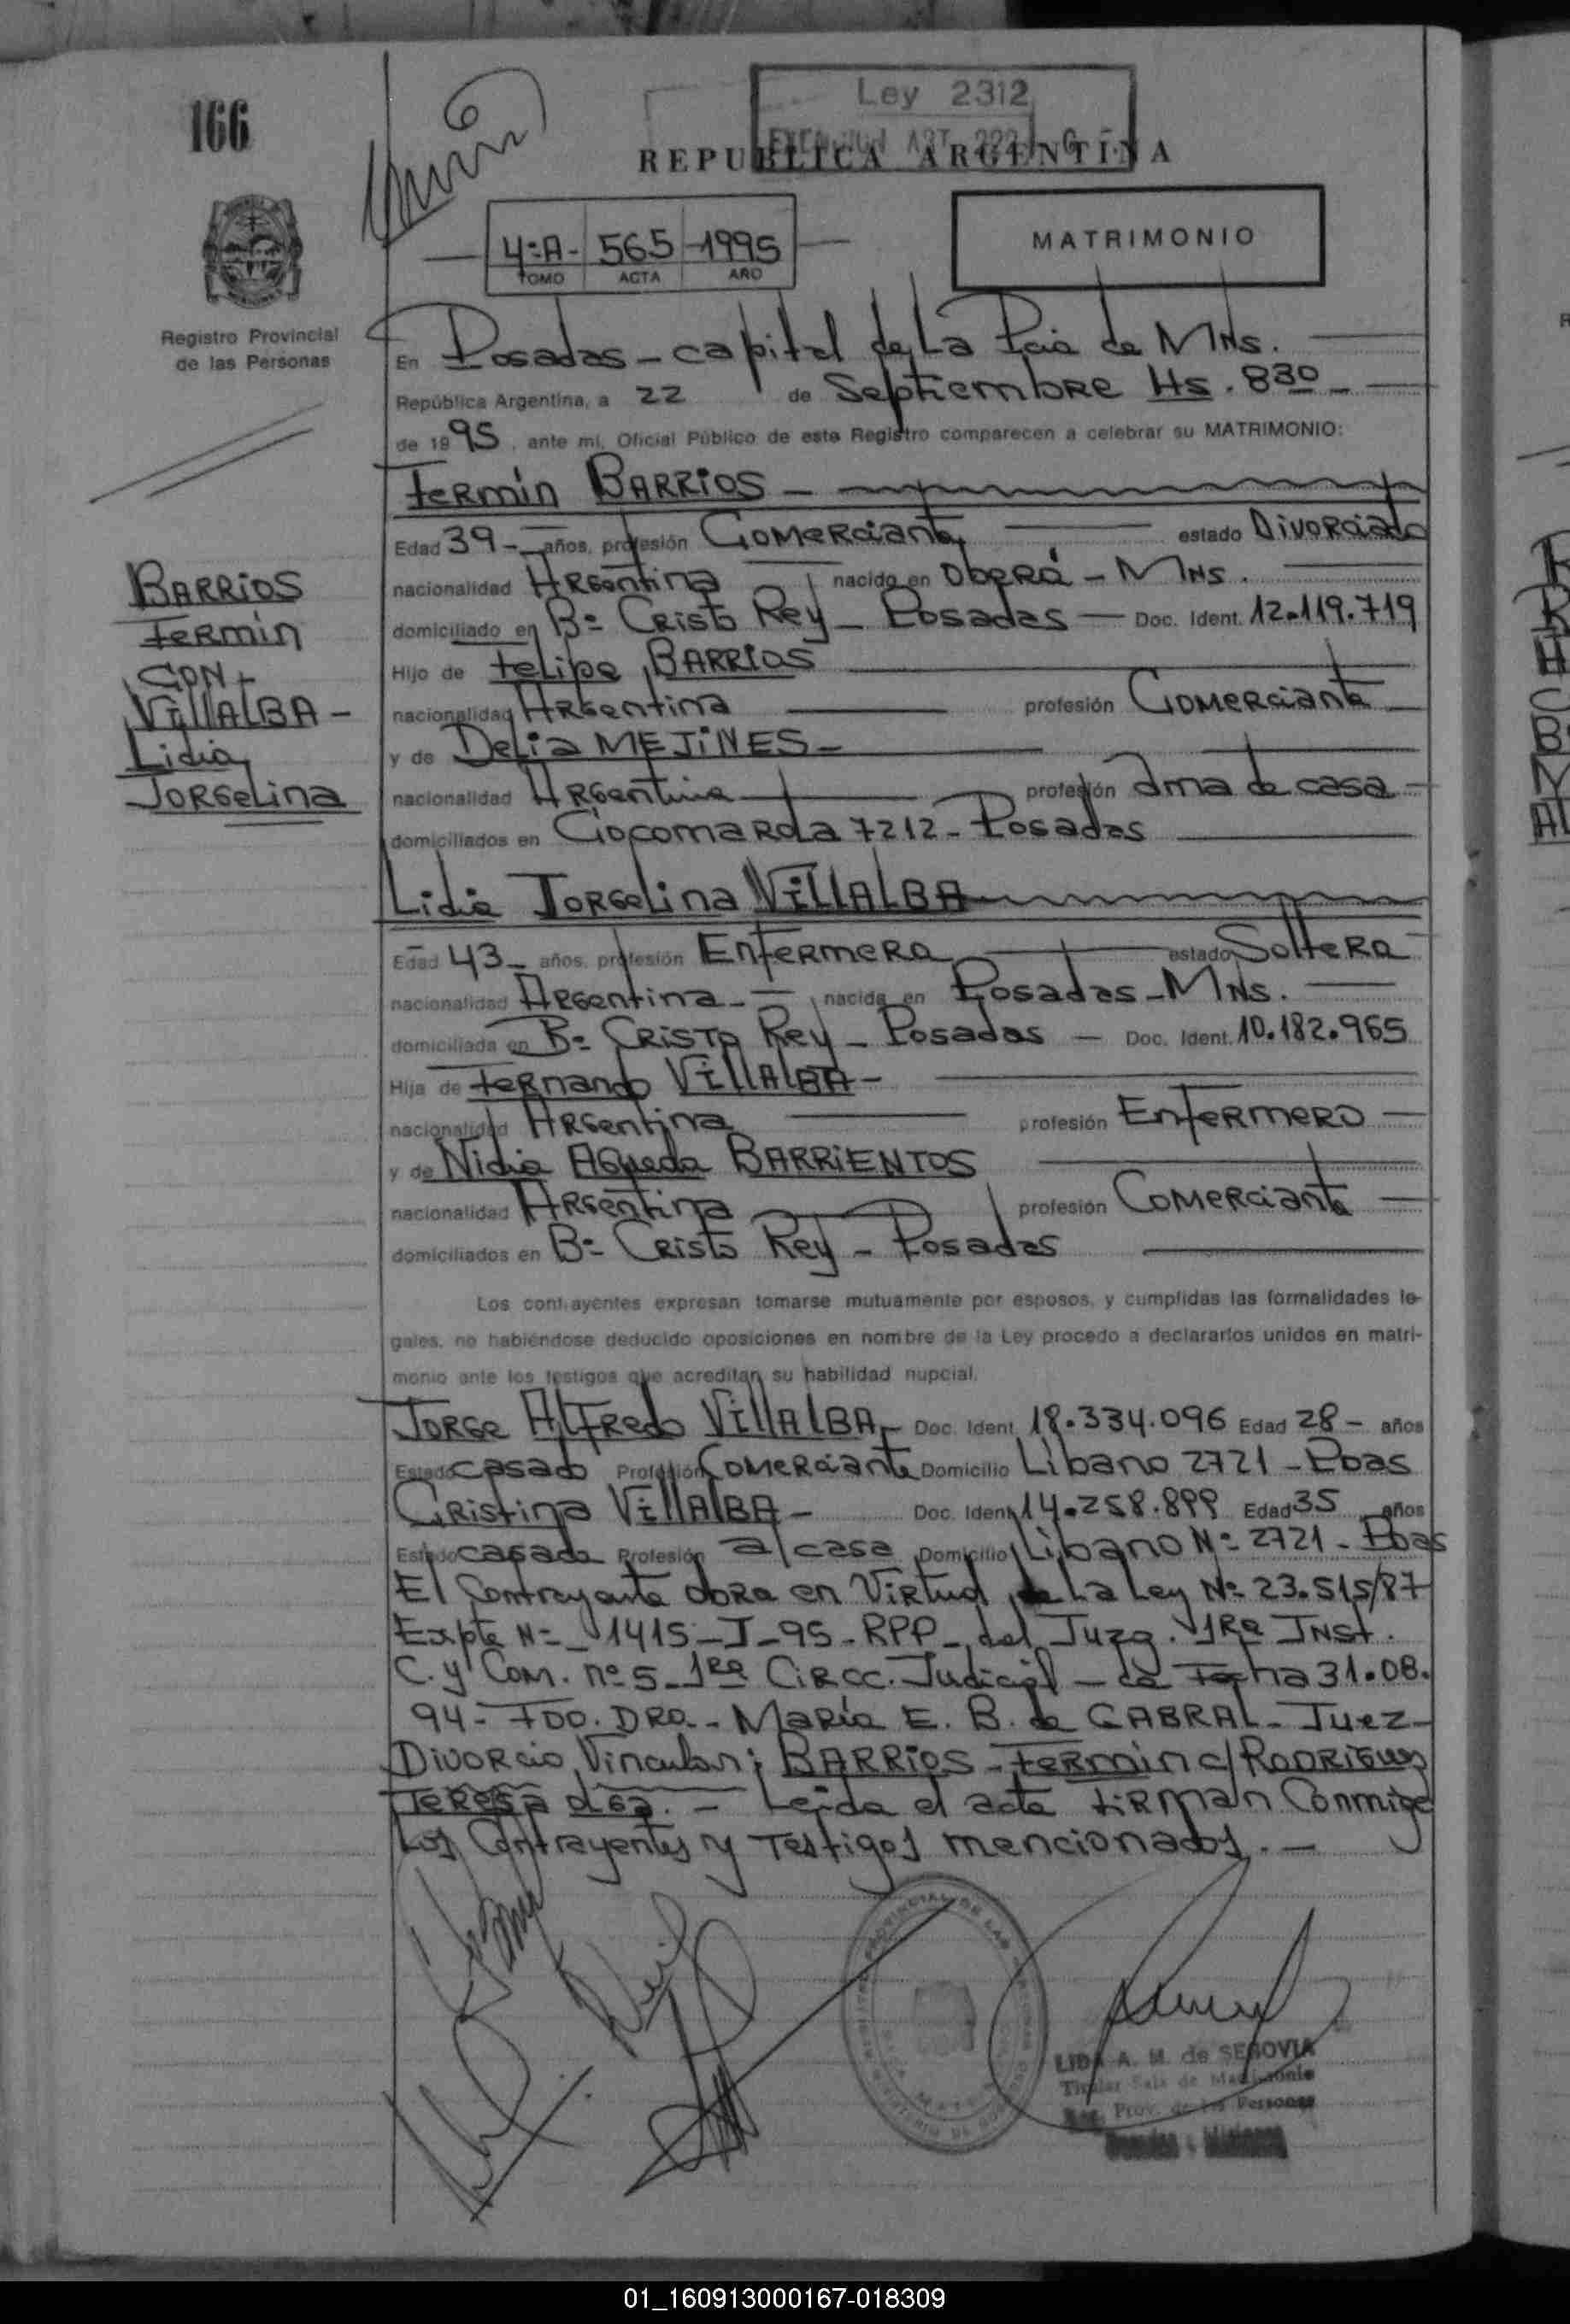 166
Ley 2312
REPUBLICA ARGENTINA
4=A- 565 -1995
TOMO ACTA AÑO
MATRIMONIO
Registro Provincial
de las Personas
En Posadas - capital de La Pcia de MNs.
República Argentina, a 22 de Septiembre Hs. 830
de 1995, ante mi, Oficial Público de este Registro comparecen a celebrar su MATRIMONIO:
Fermín BARRIOS -
Edad 39 - años, profesión Comerciante estado Divorciado
nacionalidad Argentina nacido en Oberá - MNs.
domiciliado en B= Cristo Rey - Posadas - Doc. Ident. 12.119.719
Hijo de Felipe BARRIOS
nacionalidad Argentina profesión Comerciante
y de Delia MEJINES -
nacionalidad Argentina profesión ama de casa
domiciliados en Ciocomarda 7212 - Posadas
BARRIOS
Fermín
CON -
VillALBA -
Lidia
Jorgelina
Lidia Jorgelina VillALBA
Edad 43 - años, profesión Enfermera estado Soltera
nacionalidad Argentina - nacida en Posadas - MNs.
domiciliada en B= Cristo Rey - Posadas - Doc. Ident. 10.182.965
Hija de Fernando VillALBA -
nacionalidad Argentina profesión Enfermero
y de Nidia Agueda BARRIENTOS
nacionalidad Argentina profesión Comerciante
domiciliados en B= Cristo Rey - Posadas
Los contrayentes expresan tomarse mutuamente por esposos, y cumplidas las formalidades le-
gales, no habiéndose deducido oposiciones en nombre de la Ley procedo a declararlos unidos en matri-
monio ante los testigos que acreditan su habilidad nupcial.
Jorge Alfredo VillALBA - Doc. Ident. 18.334.096 Edad 28 - años
Estado casado Profesión Comerciante Domicilio Libano 2721 - Pdas
Cristina VillALBA - Doc. Ident. 14.258.899 Edad 35 años
Estado casada Profesión a/casa Domicilio Libano N= 2721 - Pdas
El Contrayente obra en Virtud de La Ley N= 23.515/87
Expte N= - 1415 - J - 95 - RPP - del Juzg. 1Ra Inst.
C. y Com. nº 5 - 1ra Circc. Judicial - de Fecha 31.08.
94 - FDO. DRA. - María E. B. de CABRAL - Juez -
Divorcio Vincular: BARRIOS - Fermin c/ RODRIGUEZ
Teresa olga. - Leida el acta firman Conmigo
Los Contrayentes y Testigos mencionados. -
LIDA A. M. de SEGOVIA
Titular Sala de Matrimonio
Reg. Prov. de las Personas
Posadas - Misiones
01_160913000167-018309